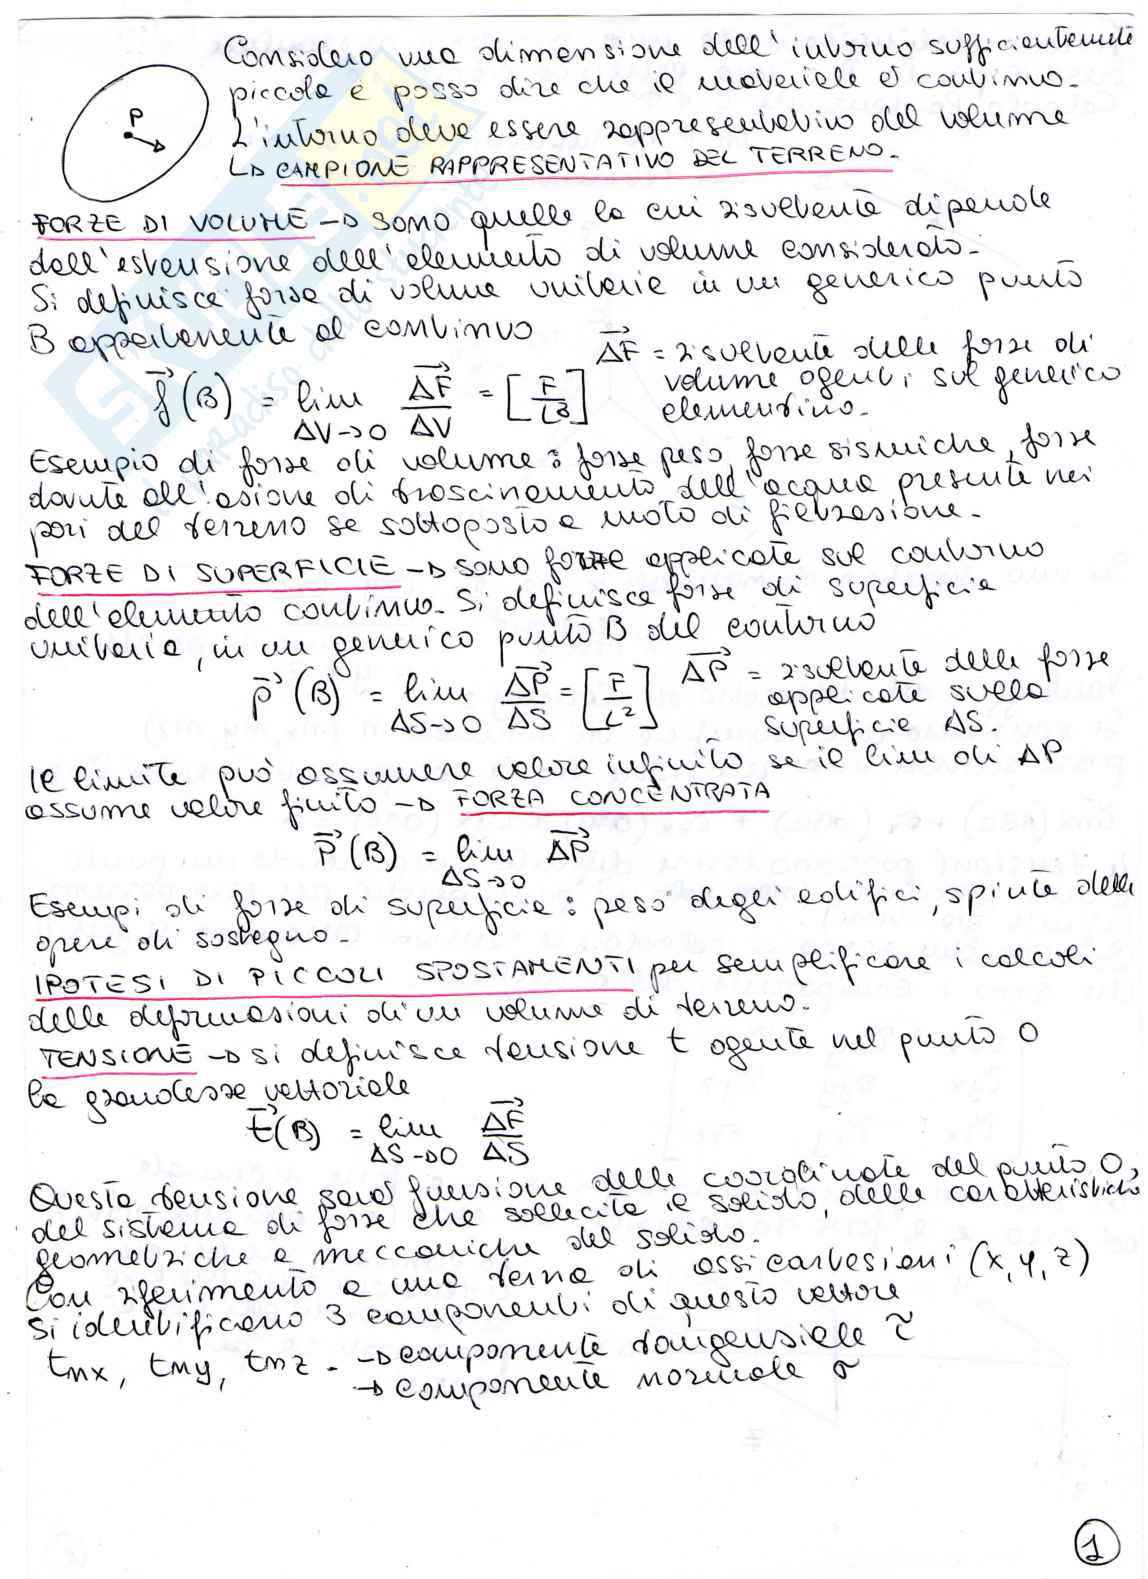 Considero una dimensione dell'intorno sufficientemente
piccola e posso dire che il materiale è continuo.
P
L'intorno deve essere rappresentativo del volume
CAMPIONE RAPPRESENTATIVO DEL TERRENO.
FORZE DI VOLUME → sono quelle la cui risultante dipende
dall'estensione dell'elemento di volume considerato.
Si definisce forza di volume unitaria in un generico punto
B appartenente al continuo
ΔF = risultante delle forze di
volume agenti sul generico
elementino.
f(B) = lim ΔV→0 ΔF/ΔV = [F/L³]
Esempio di forze di volume: forze peso, forze sismiche, forze
dovute all'azione di trascinamento dell'acqua presente nei
pori del terreno se sottoposto a moto di filtrazione.
FORZE DI SUPERFICIE → sono forze applicate sul contorno
dell'elemento continuo. Si definisce forza di superficie
unitaria, in un generico punto B del contorno
p(B) = lim ΔS→0 ΔP/ΔS = [F/L²]
ΔP = risultante delle forze
applicate sulla
superficie ΔS.
Il limite può assumere valore infinito se il lim di ΔP
assume valore finito → FORZA CONCENTRATA
P(B) = lim ΔS→0 ΔP
Esempi di forze di superficie: peso degli edifici, spinte delle
opere di sostegno.
IPOTESI DI PICCOLI SPOSTAMENTI per semplificare i calcoli
delle deformazioni di un volume di terreno.
TENSIONE → si definisce tensione t agente nel punto O
la grandezza vettoriale
t(B) = lim ΔS→0 ΔF/ΔS
Questa tensione sarà funzione delle coordinate del punto O,
del sistema di forze che sollecita il solido, delle caratteristiche
geometriche e meccaniche del solido.
Con riferimento a una terna di assi cartesiani (x, y, z)
si identificano 3 componenti di questo vettore
tnx, tny, tnz. → componente tangenziale τ
→ componente normale σ
1